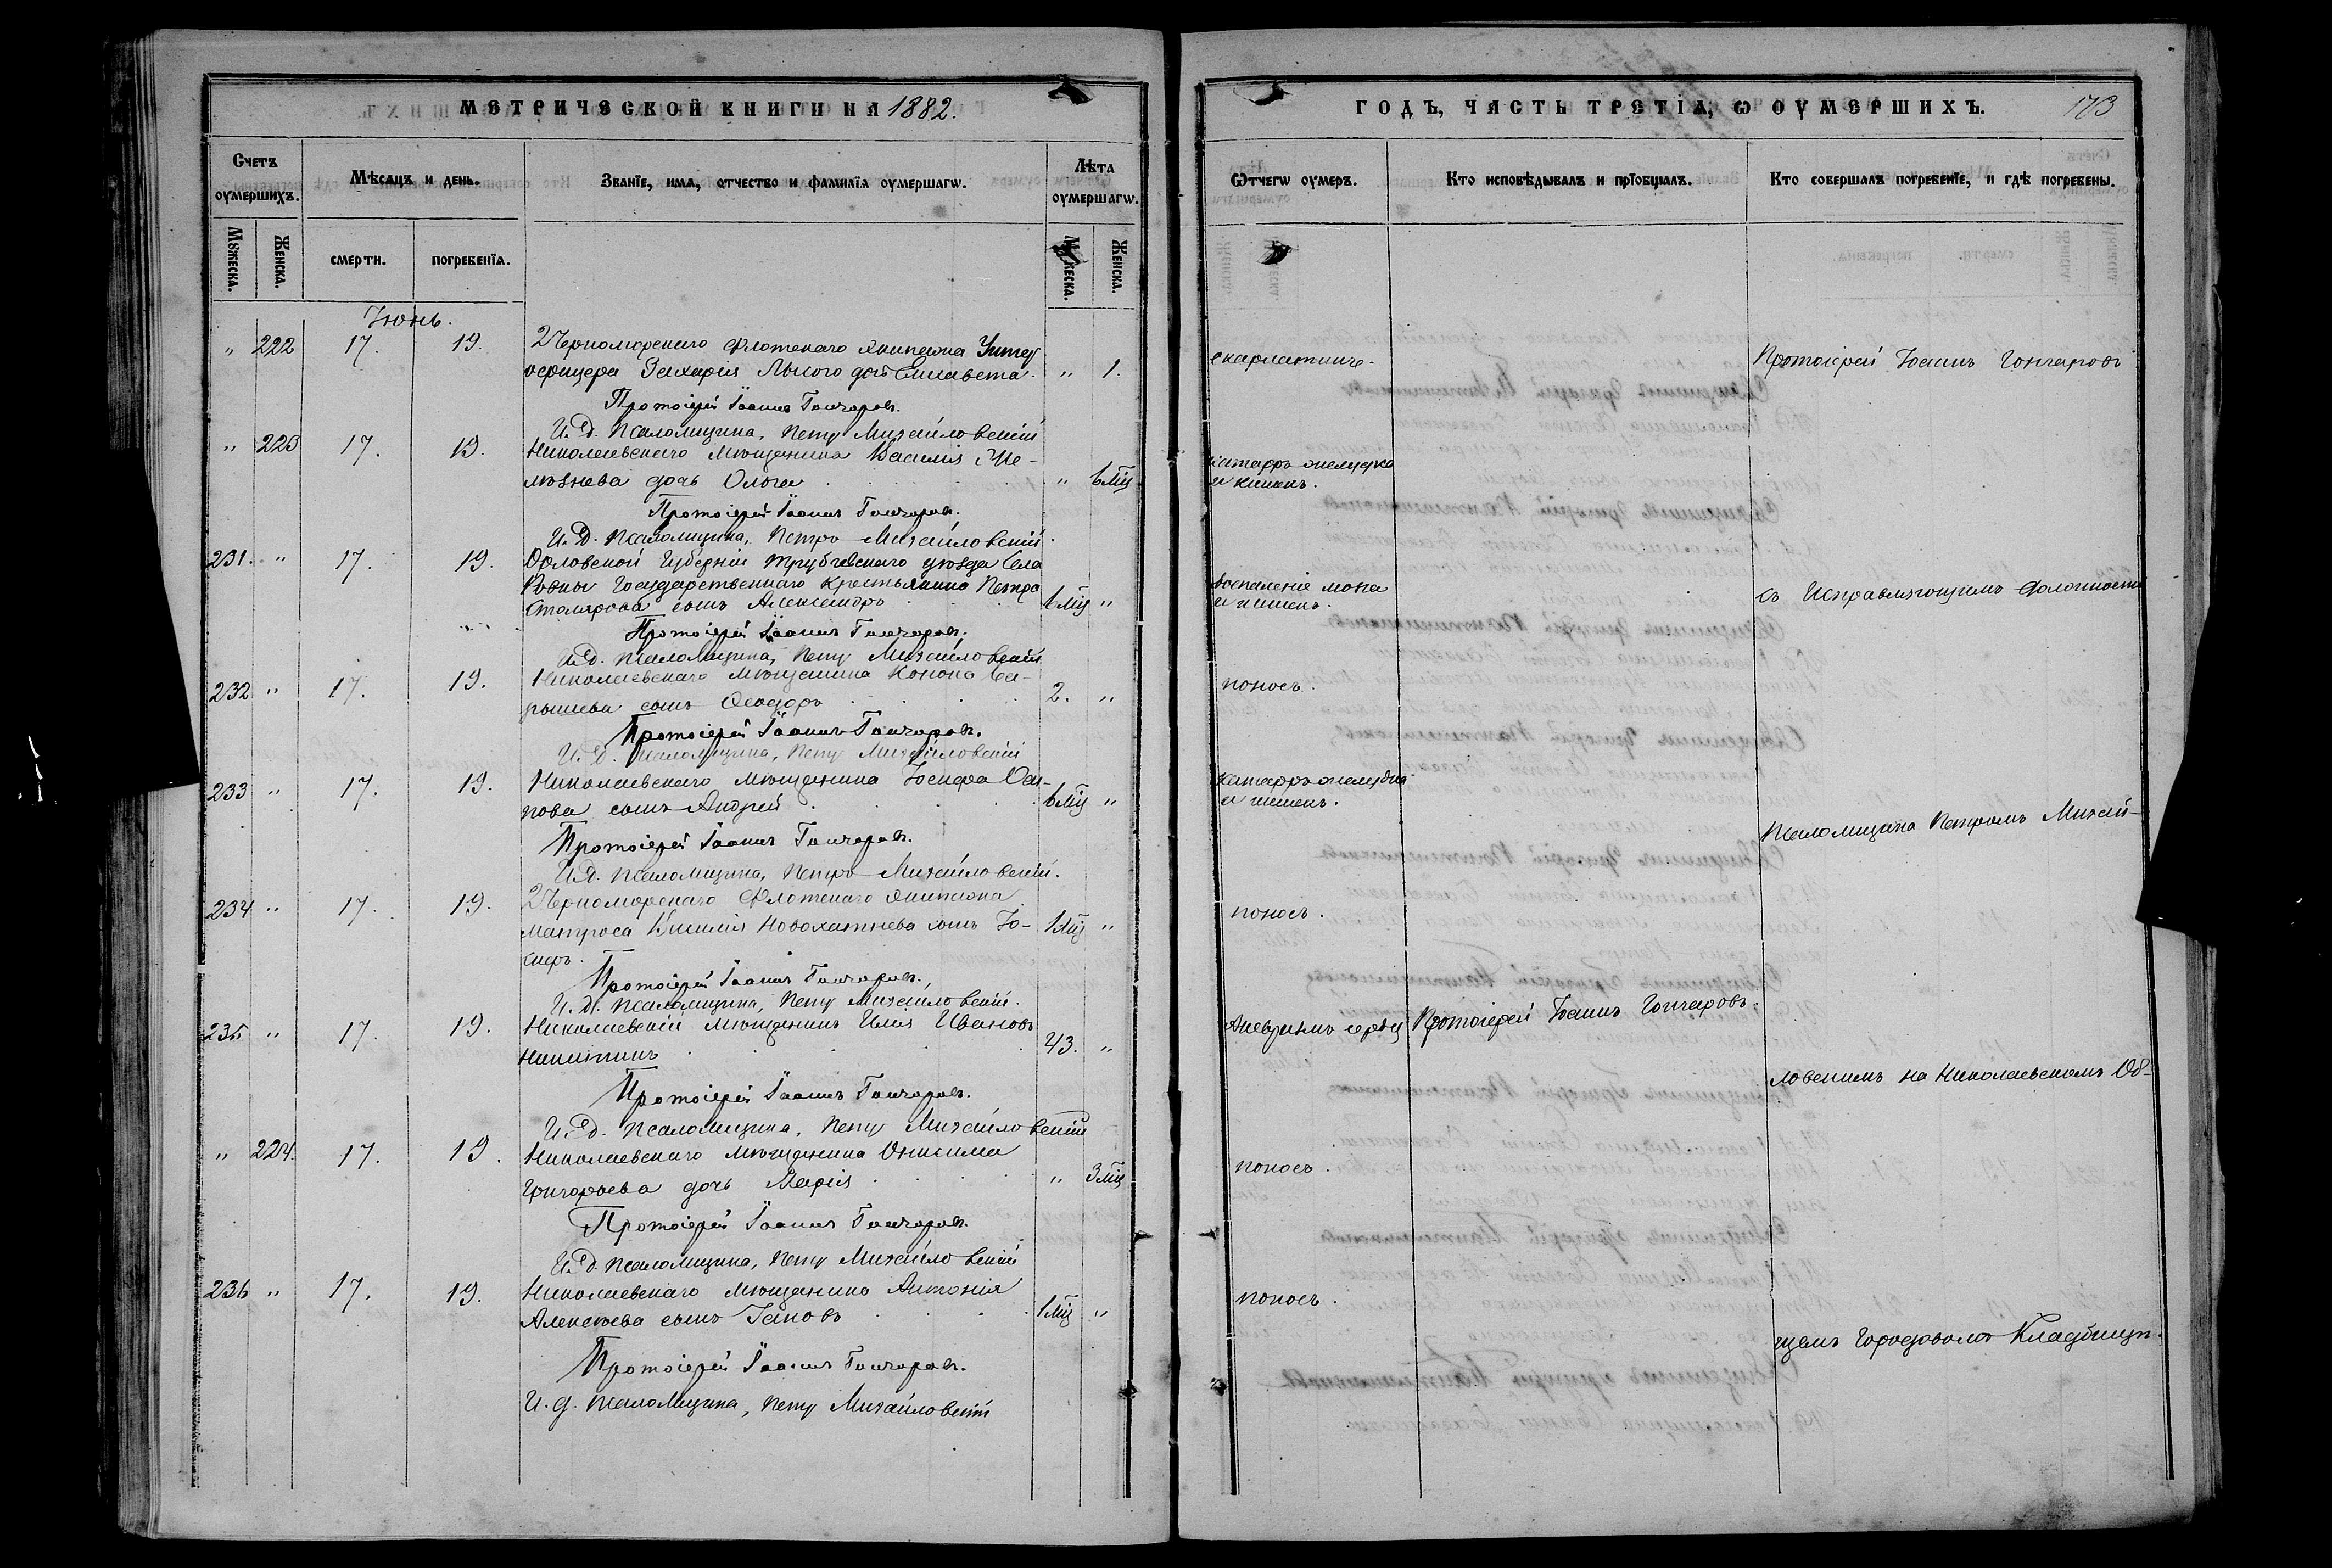 МЕТРИЧЕСКОЙ КНИГИ НА 1882.
Счетъ оумершихъ.
Мѣсяцъ и день.
Званїе, имя, отчество и фамилїя оумершагѡ.
Лѣта оумершагѡ.
Мꙋжеска.
Женска.
смерти.
погребенїя.
Мꙋжеска.
Женска.
Іюнь.
" 222 17. 19. 2 Черноморскаго Флотскаго Экипажа Унтер
офицера Захарія дочь Елисавета. " 1.
Протоіерей Іоаннъ Гончаровъ.
И. Д. Псаломщика, Петръ Михайловскій
" 223 17. 19. Николаевскаго мѣщанина Василія
дочь Ольга " 6 мц
Протоіерей Іоаннъ Гончаровъ.
И. Д. Псаломщика, Петръ Михайловскій.
231. " 17. 19. Орловской Губерніи Трубчевскаго уѣзда Села
Государственнаго крестьянина Петра
Столярова сынъ Александръ 6 мц "
Протоіерей Іоаннъ Гончаровъ.
И. Д. Псаломщика, Петръ Михайловскій
232 " 17. 19. Николаевскаго мѣщанина Конона
сынъ Ѳеодоръ 2. "
Протоіерей Іоаннъ Гончаровъ.
И. Д. Псаломщика, Петръ Михайловскій
233 " 17. 19. Николаевскаго мѣщанина Іосифа Оси-
пова сынъ Андрей 6 мц "
Протоіерей Іоаннъ Гончаровъ.
И. Д. Псаломщика, Петръ Михайловскій.
234 " 17. 19. 2 Черноморскаго Флотскаго Экипажа
матроса Василія Новохатнева сынъ Іо-
сифъ. 1 мц "
Протоіерей Іоаннъ Гончаровъ.
И. Д. Псаломщика, Петръ Михайловскій.
235 " 17. 19. Николаевскій мѣщанинъ Илія Ивановъ
Никитинъ 43. "
Протоіерей Іоаннъ Гончаровъ.
И. Д. Псаломщика, Петръ Михайловскій
" 224. 17. 19. Николаевскаго мѣщанина Онисима
Григорьева дочь Марія " 3 мц
Протоіерей Іоаннъ Гончаровъ.
И. Д. Псаломщика, Петръ Михайловскій
236 " 17. 19. Николаевскаго мѣщанина Антонія
Алексѣева сынъ Іаковъ 1 мц "
Протоіерей Іоаннъ Гончаровъ.
И. д. Псаломщика, Петръ Михайловскій
ГОДЪ, ЧАСТЬ ТРЕТІЯ, Ѡ ОУМЕРШИХЪ. 173
Ѿчегѡ оумеръ.
Кто исповѣдывалъ и прїобщалъ.
Кто совершалъ погребенїе, и гдѣ погребены.
скарлатина. Протоіерей Іоаннъ Гончаровъ
катарръ желудка
и кишекъ.
воспаленіе мозга
и кишекъ.
съ Исправляющимъ должность
поносъ.
катарръ желудка
и кишекъ.
Псаломщика Петромъ Михай-
поносъ.
Аневризмъ сердца Протоіерей Іоаннъ Гончаровъ.
ловскимъ на Николаевскомъ Об-
поносъ.
поносъ.
щемъ Городовомъ Кладбищѣ.